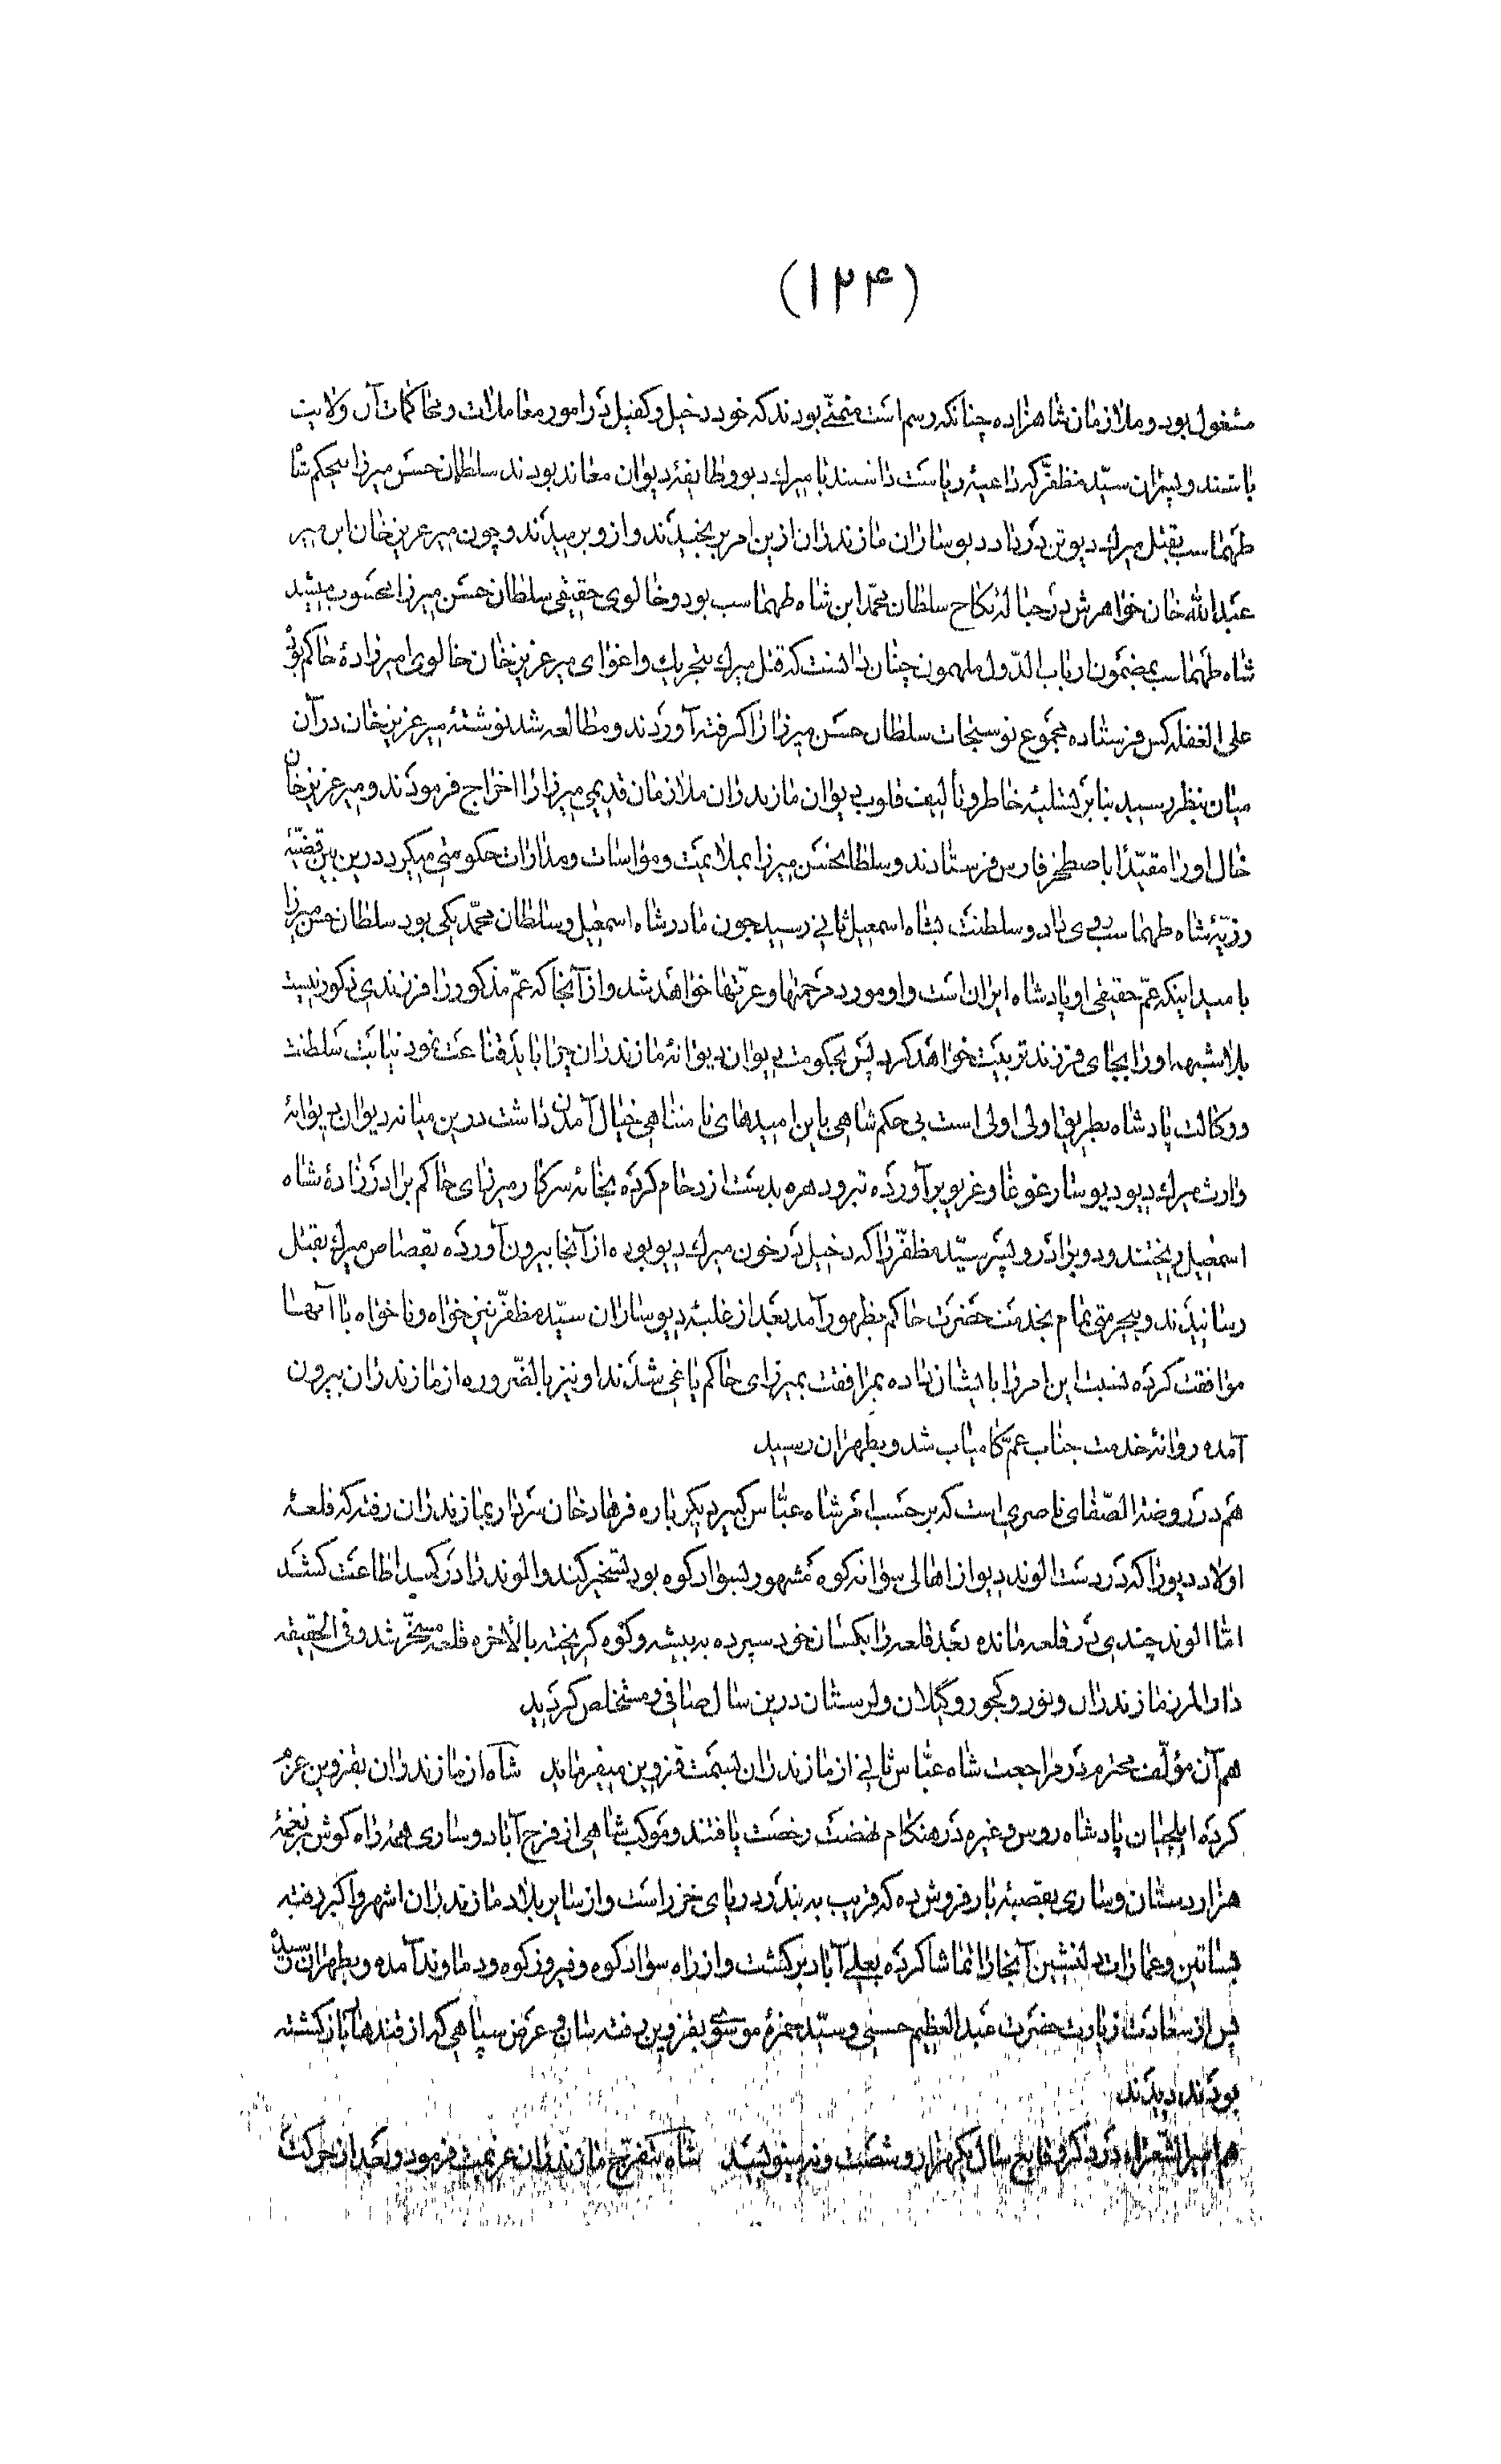 (۱۲۴)
مشغول بود و ملازمان شاهزاده چنانکه رسم است متمنّی بودند که خود دخیل و کفیل در امور معاملات و محاکمات آن ولایت
باشند و پسران سیّد مظفّر که داعیهٔ ریاست داشتند با میرك دیو و طایفهٔ دیوان معاند بودند سلطان حسن میرزا بیحکم شاه
طهماسب بقتل میرك دیو تن درداد دیوساران مازندران ازین امر برنجیدند و ازو برمیدند و چون میر عزیز خان ابن میر
عبدالله خان خواهرش در حباله نکاح سلطان محمّد ابن شاه طهماسب بود و خالوی حقیقی سلطان حسن میرزا محسوب میشد
شاه طهماسب بمضمون ارباب الدّول ملهمون چنان دانست که قتل میرك بتحریك و اغوای میر عزیز خان خالوی امیرزادهٔ حاکم بود
علی الغفله کس فرستاده مجموع نوسنجات سلطان حسن میرزا را گرفته آوردند و مطالعه شد نوشتهٔ میر عزیز خان در آن
میان بنظر رسید بنابر تسلیهٔ خاطر و تالیف قلوب دیوان مازندران ملازمان قدیمی میرزا را اخراج فرمودند و میر عزیز خان
خال او را مقیّداً باصطخر فارس فرستادند و سلطانحسن میرزا بملایمت و مواسات و مدارات حکومتی میکرد درین بین قضیّهٔ
رزیّهٔ شاه طهماسب روی داد و سلطنت بشاه اسمعیل ثانی رسید چون مادر شاه اسمعیل و سلطان محمّد یکی بود سلطان حسن میرزا
بامید اینکه عمّ حقیقی او پادشاه ایران است و او مورد مرحمتها و عزّتها خواهد شد و از آنجا که عمّ مذکور را فرزندی ذکور نیست
بلاشبهه او را بجای فرزند تربیت خواهد کرد پس بحکومت دیوان دیوانهٔ مازندران چرا باید قناعت نمود نیابت سلطنت
و وکالت پادشاه بطریق اولی اولی است بی حکم شاهی باین امیدهای نامتناهی خیال آمدن داشت درین میانه دیوان دیوانهٔ
وارث میرك دیو دیوسار غوغا و غریو برآورده تبر و دهره بدست ازدحام کرده بخانهٔ سرکار میرزای حاکم برادرزادهٔ شاه
اسمعیل ریختند و دو برادر و پسر سیّد مظفّر را که دخیل در خون میرك دیو بوده از آنجا بیرون آورده بقصاص میرك بقتل
رسانیدند و بیحرمتی تمام بخدمت حضرت حاکم بظهور آمد بعد از غلبهٔ دیوساران سیّد مظفّر نیز خواه و ناخواه با آنها
موافقت کرده نسبت این امر را بایشان داده بمرافقت بمیرزای حاکم یاغی شدند او نیز بالضّروره از مازندران بیرون
آمده روانهٔ خدمت جناب عمّ کامیاب شد و بطهران رسید
هم در روضة الصّفای ناصری است که بر حسب امر شاه عبّاس کبیر دیگر باره فرهاد خان سردار بمازندران رفته که قلعهٔ
اولاد دیو را که در دست الوند دیو از اهالی سوانه کوه مشهور بسواد کوه بود تسخیر کند و الوند را در کمند اطاعت کشد
امّا الوند چندی در قلعه مانده بعد قلعه را بکسان خود سپرده به بیشه و کوه گریخته بالاخره قلعه مسخّر شد و فی الحقیقه
دار المرز مازندران و نور و کجور و گیلان و لرستان درین سال صافی و مستخلص گردید
هم آن مؤلّف محترم در مراجعت شاه عبّاس ثانی از مازندران بسمت قزوین میفرماید شاه از مازندران بقزوین عزم
کرده ایلچیان پادشاه روس و غیره در هنگام نهضت رخصت یافتند و موکب شاهی از فرح آباد و ساری همه راه گوش بر نغمهٔ
هزار دستان و ساری بقصبهٔ بارفروش ده که قریب به بندر دریای خزر است و از سایر بلاد مازندران اشهر و اکبر رفته
بساتین و عمارات دلنشین آنجا را تماشا کرده بعلی آباد برگشت و از راه سواد کوه و فیروز کوه و دماوند آمده و بطهران رسید
پس از سعادت زیارت حضرت عبدالعظیم حسنی و سیّد حمزهٔ موسوی بقزوین رفته سان و عرض سپاهی که از قندهار باز گشته
بودند دیدند
هم امیر الشّعراء در ذکر وقایع سال یکهزار و شصت و نه مینویسد شاه بتفرّج مازندران عزیمت فرمود و بعد از حرکت